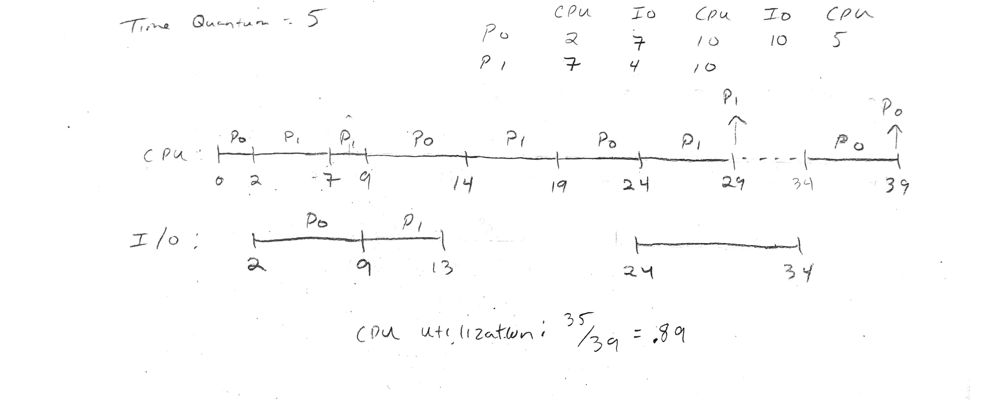 Time Quantum = 5
CPU IO CPU IO CPU
P0 2 7 10 10 5
P1 7 4 10
P1 P0
CPU: P0 P1 P1 P0 P1 P0 P1 P0
0 2 7 9 14 19 24 29 34 39
I/O: P0 P1
2 9 13 24 34
CPU utilization: 35/39 = .89